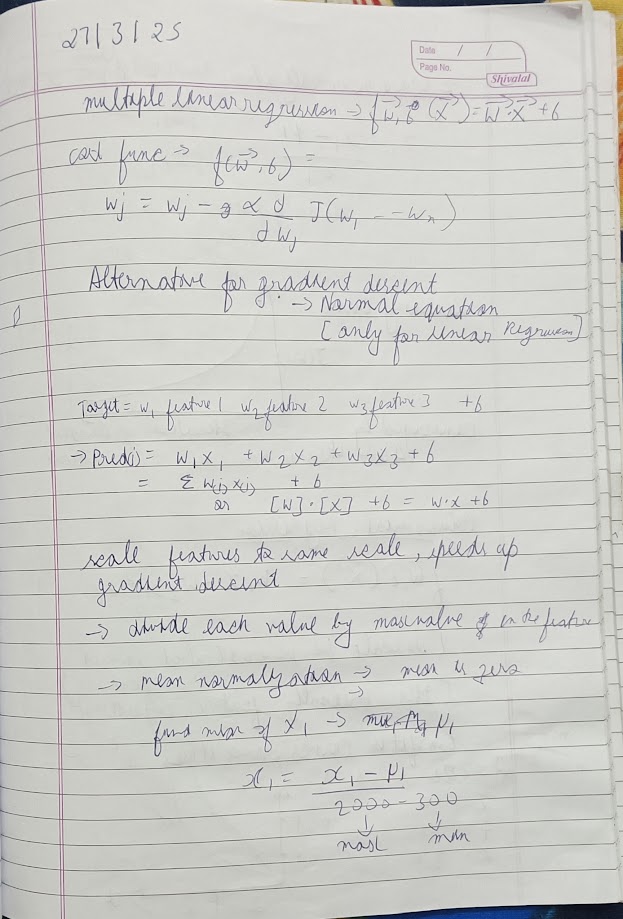 27/3/25
Date / /
Page No.
Shivalal
multiple linear regression → f w⃗, b (x⃗) = w⃗ · x⃗ + b
cost func → f(w⃗, b) =
wj = wj - α d/dwj J(w1 -- wn)
Alternative for gradient descent
→ Normal equation
[only for linear Regression]
Target = w1 feature 1 w2 feature 2 w3 feature 3 + b
→ Pred(i) = w1x1 + w2x2 + w3x3 + b
= Σ w(j) x(j) + b
or [W]·[X] + b = w·x + b
scale features to same scale, speeds up
gradient descent
→ divide each value by max value in the feature
→ mean normalization → mean is zero
→
find mean of x1 → μ1
x1 = x1 - μ1 / 2000 - 300
↓ ↓
max min